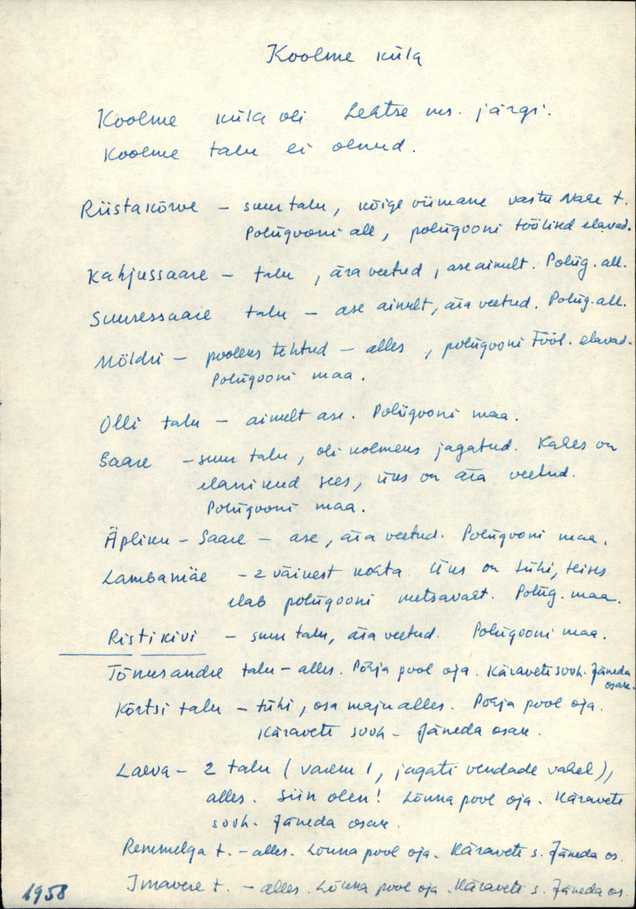 Koolme küla
Koolme küla oli Lehtse ms. järgi.
Koolme talu ei olnud.
Riistakõrve – suur talu, kõige viimane vastu Nale t.
Polügooni all, polügooni töölised elavad.
Kahjussaare – talu, ära veetud, ase ainult. Polüg. all.
Suuressaare talu – ase ainult, ära veetud. Polüg. all.
Möldri – pooleks tehtud – alles, polügooni tööl. elavad.
Polügooni maa.
Olli talu – ainult ase. Polügooni maa.
Saare – suur talu, oli kolmeks jagatud. Kahes on
elanikud sees, üks on ära veetud.
Polügooni maa.
Äpliku-Saare – ase, ära veetud. Polügooni maa.
Lambamäe – 2 väikest kohta. Üks on tühi, teises
elab polügooni metsavaht. Polüg. maa.
Ristikivi – suur talu, ära veetud. Polügooni maa.
Tõnusandre talu – alles. Põhja pool oja. Käravete sovh. Jäneda osak.
Kõrtsi talu – tühi, osa maju alles. Põhja pool oja.
Käravete sovh – Jäneda osak.
Laeva – 2 talu (varem 1, jagati vendade vahel),
alles. Siin olen! Lõuna pool oja. Käravete
sovh. Jäneda osak.
Remmelga t. – alles. Lõuna pool oja. Käravete s. Jäneda os.
Imavere t. – alles. Lõuna pool oja. Käravete s. Jäneda os.
1958